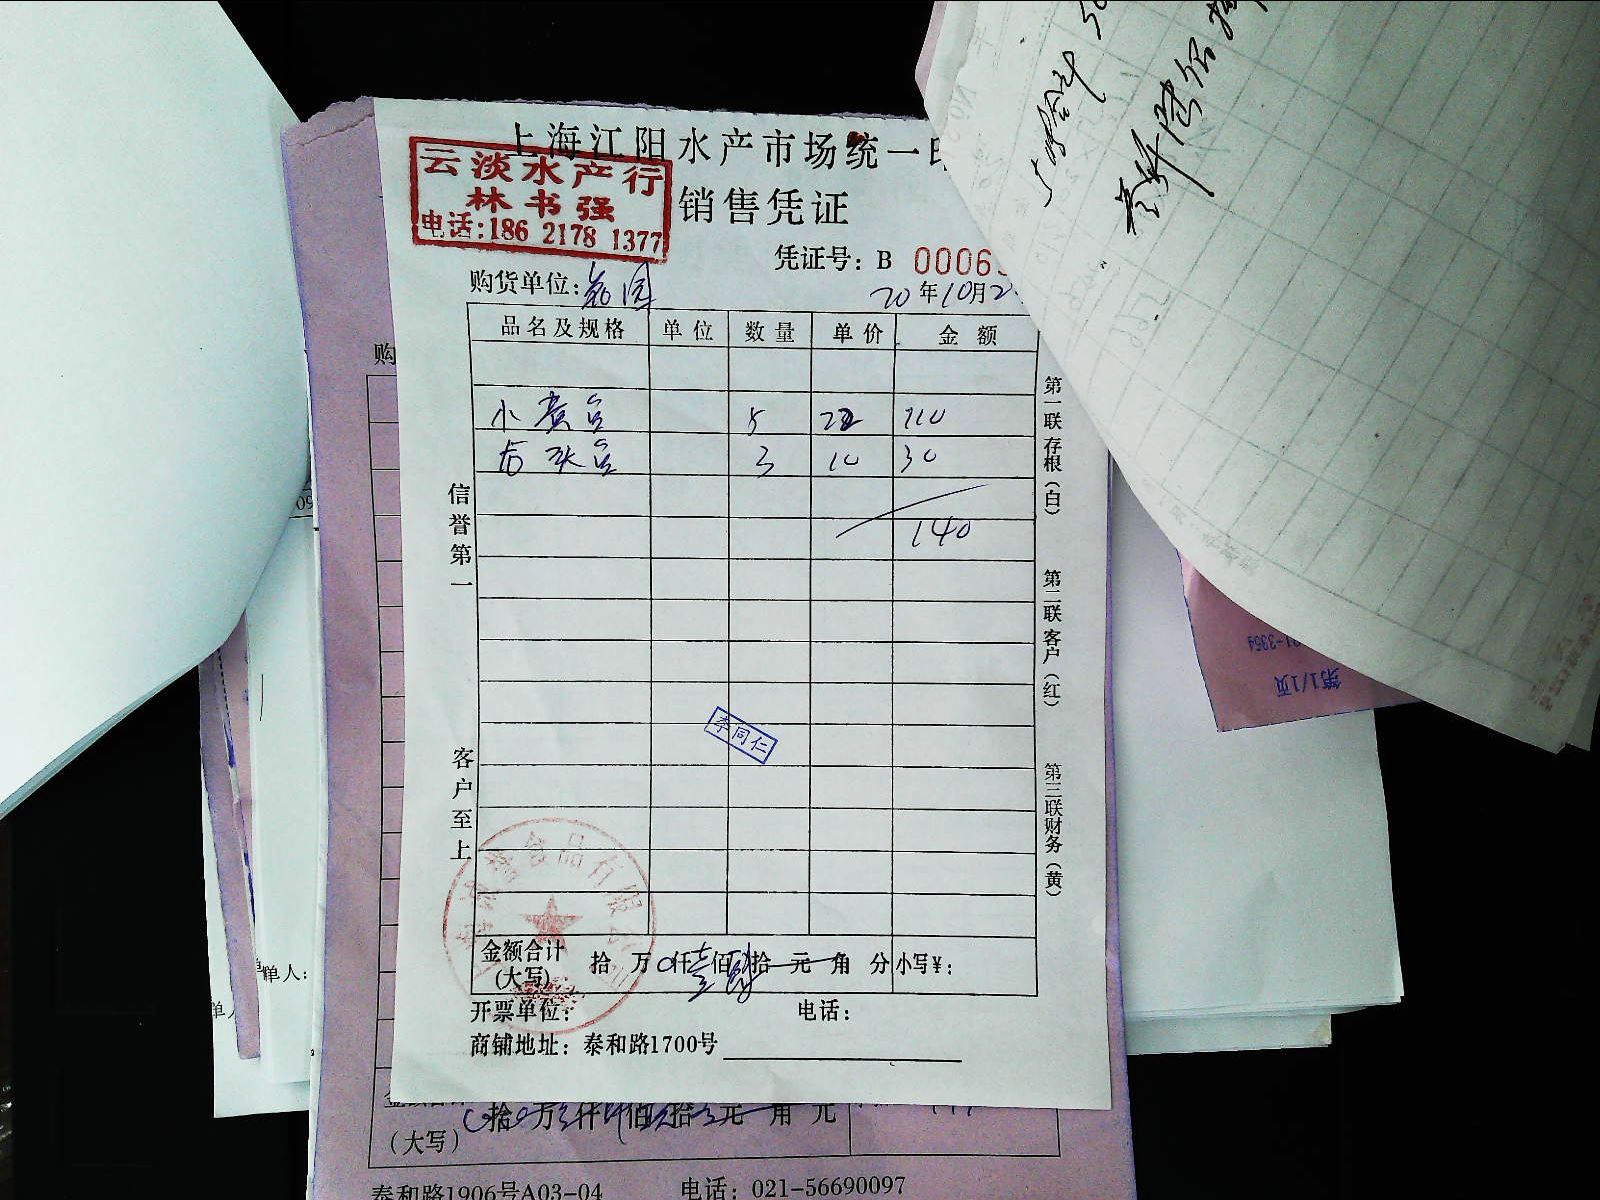 上海江阳水产市场统一
云淡水产行
林书强
电话:186 2178 1377
销售凭证
凭证号: B 0006
购货单位:
20年10月2
品名及规格 单位 数量 单价 金额
小黄鱼 5 22 110
3 10 30
140
信誉第一
客户至上
第一联存根(白)
第二联客户(红)
第三联财务(黄)
李同仁
食品有限
金额合计
(大写) 拾 万 0仟壹佰肆拾 元 角 分 小写¥:
开票单位:
电话:
商铺地址: 泰和路1700号
购
09
单人:
单人
第1/1页
拾 万 仟 佰 拾 元 角
(大写)
泰和路1906号A03-04 电话: 021-56690097